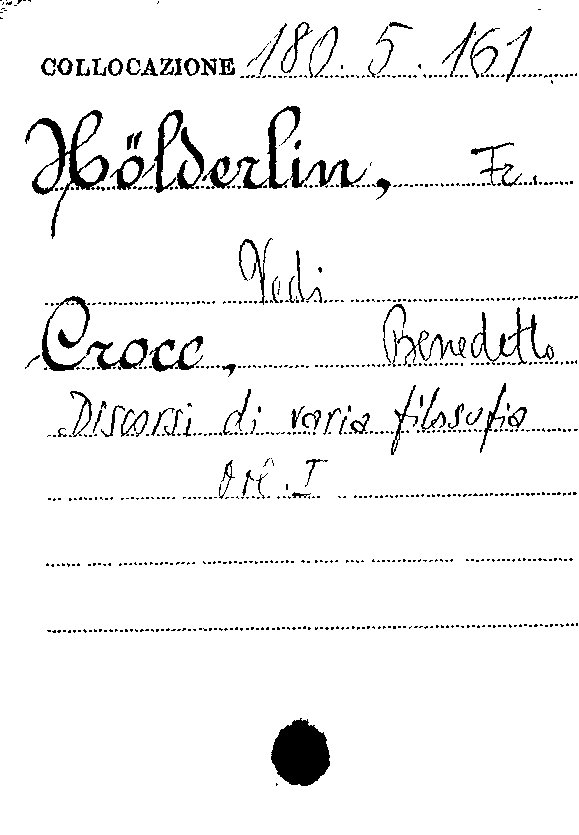 COLLOCAZIONE 180.5.161
Hölderlin, Fr.
Vedi
Croce, Benedetto
Discorsi di varia filosofia
Vol. I